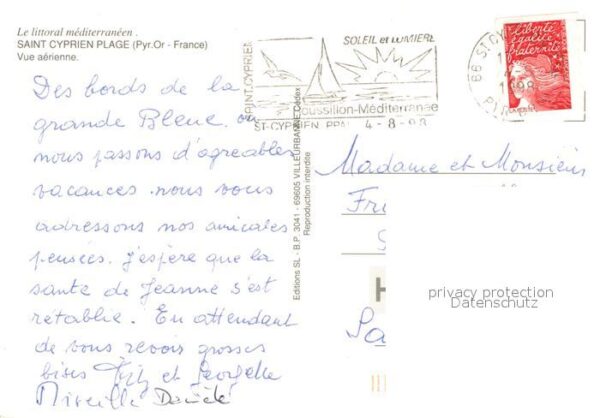 Le littoral méditerranéen .
SAINT CYPRIEN PLAGE (Pyr.Or - France)
Vue aérienne.
Des bords de la
grande Bleue où
nous passons d'agréables
vacances nous vous
adressons nos amicales
pensées. J'espère que la
santé de Jeanne s'est
rétablie. En attendant
de vous revoir grosses
bises et Georgette
Mireille Danièle
Editions SL - B.P. 3041 - 69605 VILLEURBANNE Cedex
Reproduction interdite
SAINT-CYPRIEN
SOLEIL et LUMIERE
Roussillon-Méditerranée
ST-CYPRIEN PPAL 4-8-98
66 ST CY
1998
Liberté
égalité
fraternité
LA POSTE
Madame et Monsieur
Fr
H
Sa
privacy protection
Datenschutz